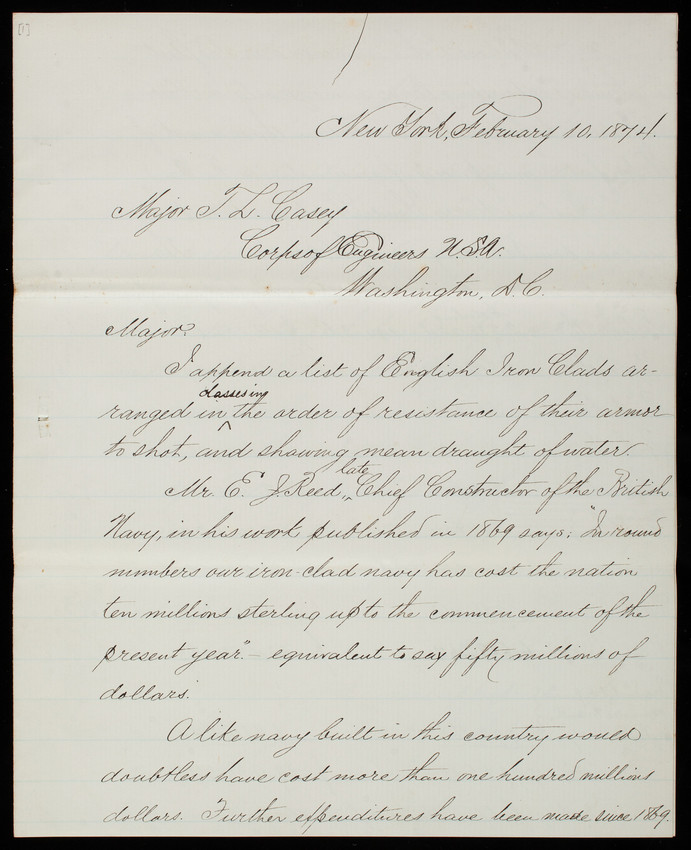 [1]
New York, February 10, 1874.
Major T. L. Casey
Corps of Engineers U.S.A.
Washington, D.C.
Major:
I append a list of English Iron Clads ar-
classes in
ranged in the order of resistance of their armor
to shot, and showing mean draught of water.
late
Mr. E. J. Reed, Chief Constructor of the British
Navy, in his work published in 1869 says: "In round
numbers our iron-clad navy has cost the nation
ten millions sterling up to the commencement of the
present year." - equivalent to say fifty millions of
dollars.
A like navy built in this country would
doubtless have cost more than one hundred millions
dollars. Further expenditures have been made since 1869.